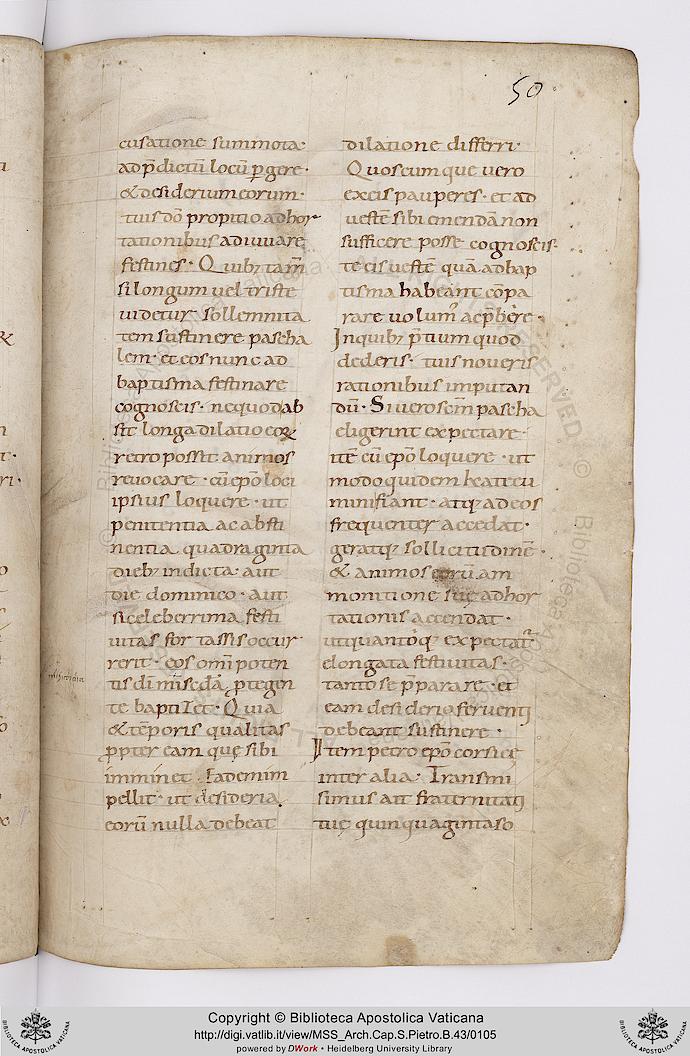 50
cusatione summota·
ad p̄dictū locū ꝑgere·
& desiderium eorum·
tuis dō propitio adhor
tationibus adiuuare
festines· Quib; tam̄
si longum uel triste
uidetur sollemnita
tem sustinere pascha
lem· et eos nunc ad
baptisma festinare
cognoscis· ne quod ab
sit longa dilatio eoꝝ
retro possit animos
reuocare· cū ep̄o loci
ipsius loquere· ut
penitentia ac absti
nentia quadraginta
dieb; indicta· aut
die dominico· aut
si celeberrima festi
uitas for tassis occur
rerit· eos om̄i poten
tis dī mis̄cdā ꝓtegen
te baptizet· Quia
& tēporis qualitas
ꝓpter eam quę sibi
imminet· Eademim
pellit· ut desideria
eorū nulla debeat
dilatione differri·
Quoscumque uero
ex eis pauperes· et ad
uestē sibi emendā non
sufficere posse cognoscis·
te eis uestē quā ad bap
tisma habeant cōpa
rare uolum᾽ ac p̄bēre·
In quib; p̄tium quod
dederis· tuis noueris
rationibus imputan
dū· Si uero sc̄m pascha
eligerint expectare·
itē cū ep̄o loquere· ut
modo quidemheatecu
mini fiant· atq; ad eos
frequenter accedat·
geratq; sollicitudinē·
& animos eorū am
monitione suę adhor
tationis accendat·
ut quanto q; expectat̄
elongata festiuitas·
tanto se p̄parare· et
eam desiderio seruenti
debeant sustinere·
Item petro ep̄o corsicę
inter alia· Transmi
simus ait fraternitati
tuę quinquaginta so
Copyright © Biblioteca Apostolica Vaticana
http://digi.vatlib.it/view/MSS_Arch.Cap.S.Pietro.B.43/0105
powered by DWork • Heidelberg University Library